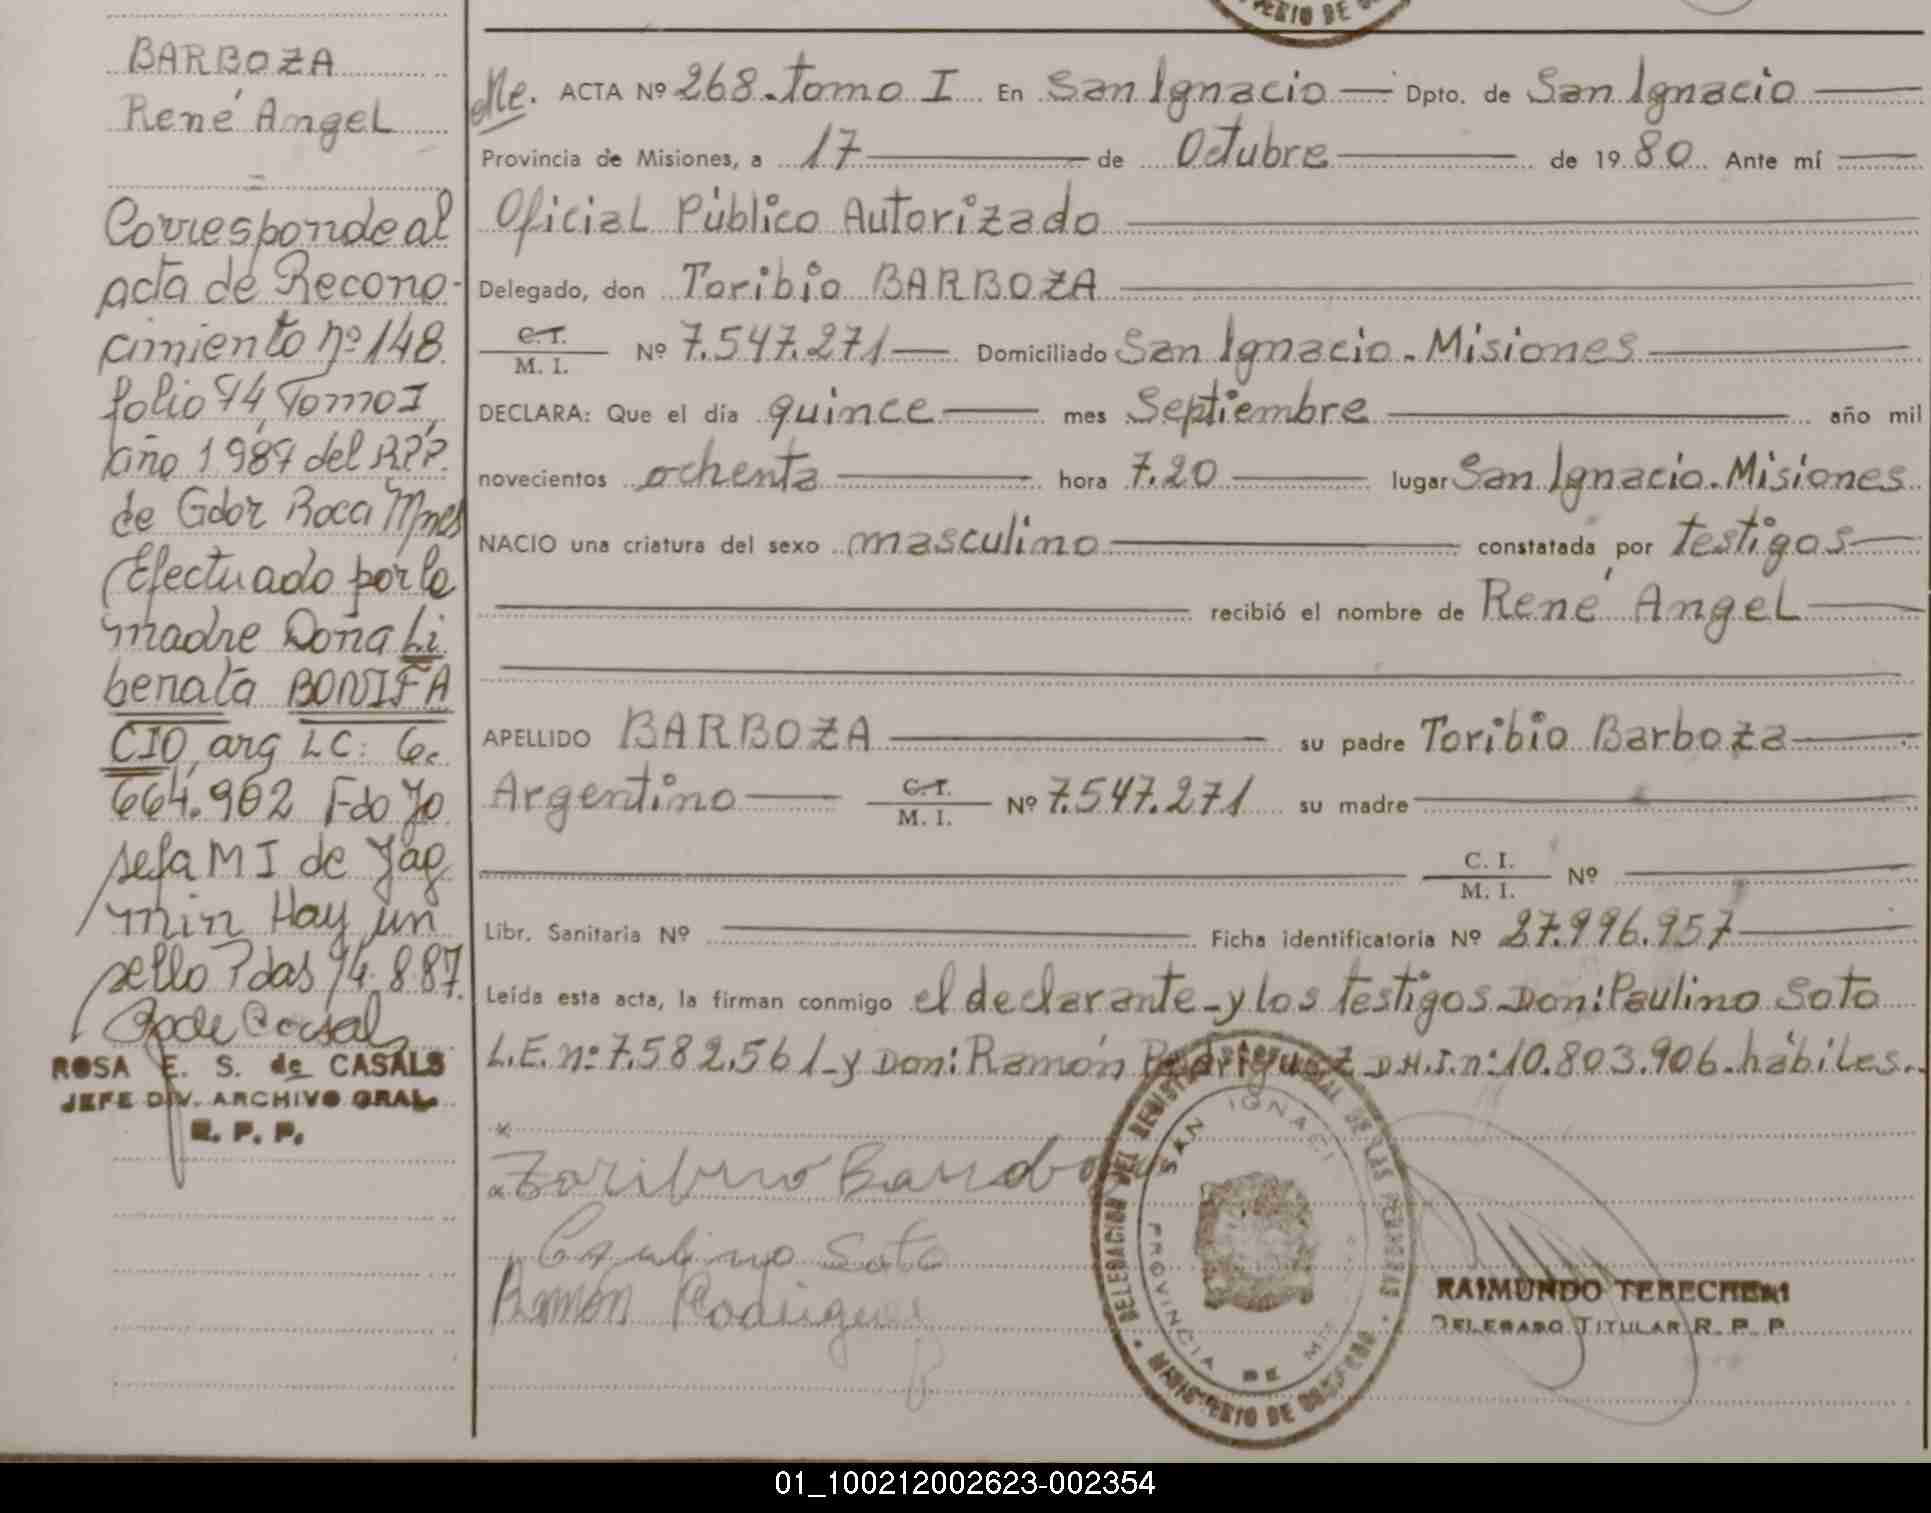 BARBOZA
René Angel
Corresponde al
acta de Recono-
cimiento nº 148
folio 74, Tomo I,
año 1987 del R.P.P.
de Gdor Roca Mnes
Efectuado por la
madre Doña Li
berata BONIFA
CIO, arg LC: 6.
664.902 Fdo Jo
sefa M I de Yag
min Hay un
sello Pdas 94.8.87.
ROSA E. S. de CASALS
JEFE DIV. ARCHIVO GRAL.
R. P. P.
Me. ACTA Nº 268. Tomo I En San Ignacio Dpto. de San Ignacio
Provincia de Misiones, a 17 de Octubre de 1980 Ante mí
Oficial Público Autorizado
Delegado, don Toribio BARBOZA
C.I. / M. I. Nº 7.547.271 Domiciliado San Ignacio. Misiones
DECLARA: Que el día quince mes Septiembre año mil
novecientos ochenta hora 7.20 lugar San Ignacio. Misiones
NACIO una criatura del sexo masculino constatada por testigos
recibió el nombre de René Angel
APELLIDO BARBOZA su padre Toribio Barboza
Argentino C.I. / M. I. Nº 7.547.271 su madre
C. I. / M. I. Nº
Libr. Sanitaria Nº Ficha identificatoria Nº 27.996.957
Leída esta acta, la firman conmigo el declarante y los testigos Don: Paulino Soto
L.E. nº: 7.582.561 y Don: Ramón Rodriguez D.N.I. nº: 10.803.906. hábiles.
Toribio Barboza
Paulino Soto
Ramón Rodriguez
DELEGACION DEL REGISTRO PROVINCIAL DE LAS PERSONAS
SAN IGNACIO
PROVINCIA DE MISIONES
MINISTERIO DE GOBIERNO
RAIMUNDO TEBECHERI
DELEGADO TITULAR R. P. P.
01_100212002623-002354